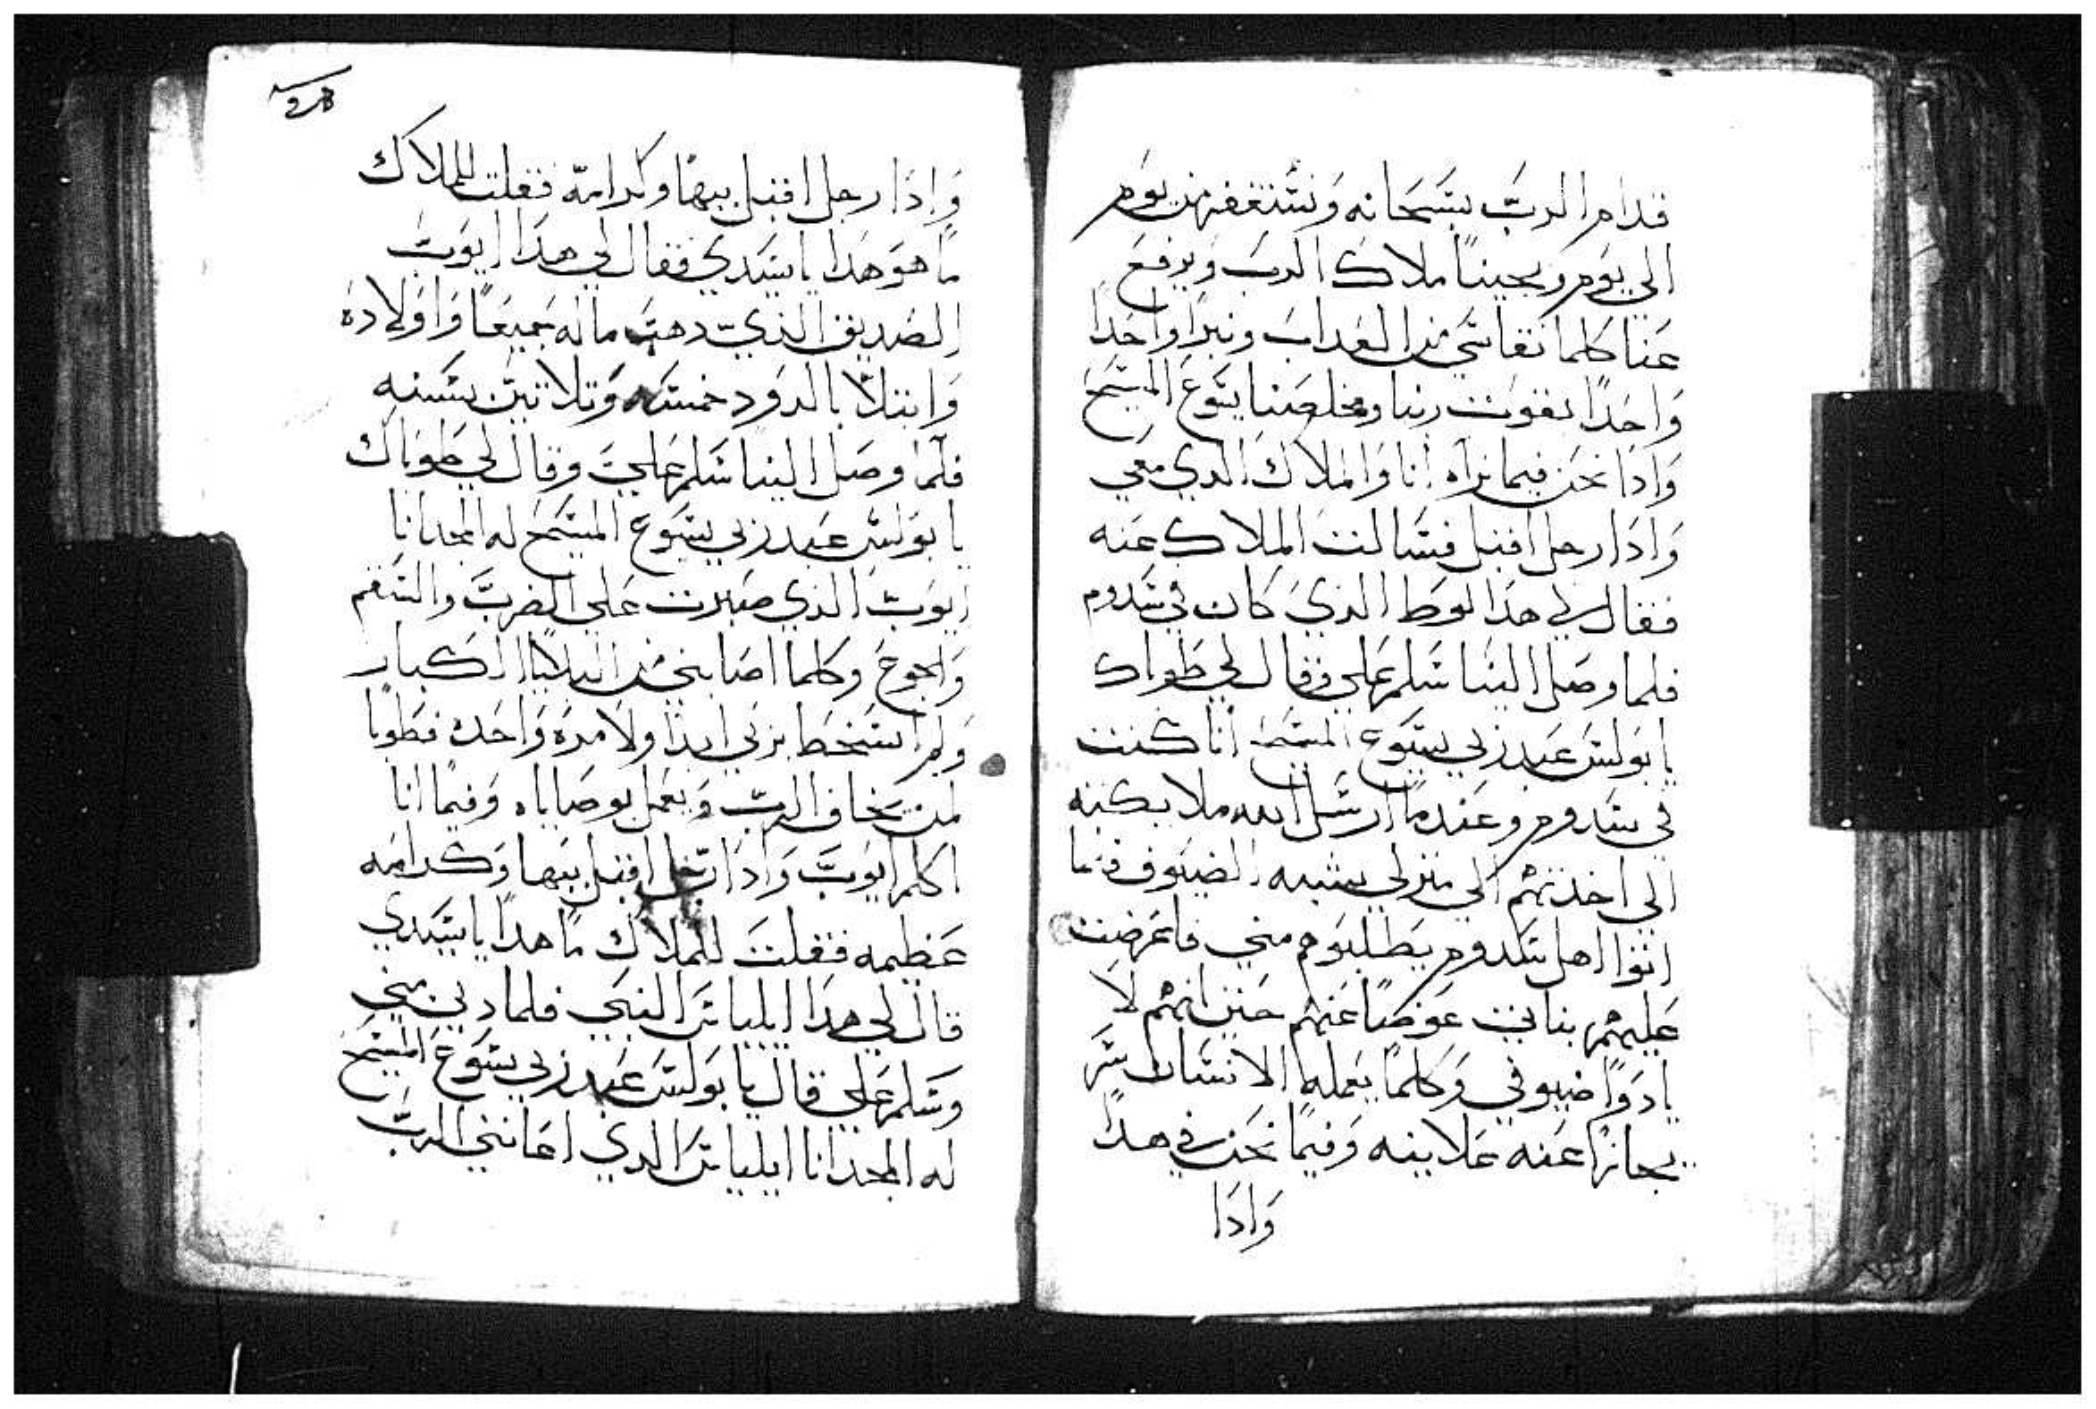 قدام الرب بسبحانه ونستغفره من يوم
الي يوم ويجينا ملاك الرب ويرفع
عنا كلما نقاسي من العداب ونبرا واحدا
واحدا بقوت ربنا ومخلصنا يسوع المسيح
وادا نحن فيما نراه انا والملاك الدي معي
وادا رجل اقبل فسالت الملاك عنه
فقال لي هدا لوط الذي كان في سدوم
فلما وصل الينا سلم علي وقال لي طوباك
يا بولس عبد ربي يسوع المسيح انا كنت
في سدوم وعندما ارسل الله ملايكته
الي اخدتهم الي منزلي بشبه الضيوف فلما
اتوا اهل سدوم يطلبوهم مني فاعرضت
عليهم بناتي عوضا عنهم حتى انهم لا
يادوا ضيوفي وكلما يعمله الانسان سر
يجازا عنه علانيه وفيما نحن في هدا
وادا
وادا رجل اقبل ببها وكرامه فقلت للملاك
ما هو هدا يا سيدي فقال لي هدا ايوب
الصديق الذي دهب ماله جميعا واولاده
وابتلا بالدود خمسه وتلاتين سنه
فلما وصل الينا سلم علي وقال لي طوباك
يا بولس عبد ربي يسوع المسيح له المجد انا
ايوب الذي صبرت علي الضرب والسقم
والجوع وكلما اصابني من البلايا الكبار
ولم اسخط بربي ابدا ولا مرة واحدة فطوبا
لمن يخاف الرب ويعمل بوصاياه وفيما انا
اكلم ايوب وادا رجل اقبل ببها وكرامه
عظيمه فقلت للملاك ما هدا يا سيدي
قال لي هدا ايلياس النبي فلما دني مني
وسلم علي قال يا بولس عبد ربي يسوع المسيح
له المجد انا ايلياس الدي اعانني الرب